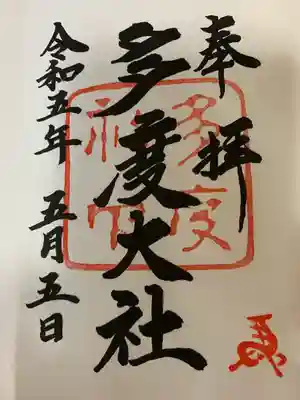 奉拝
多度大社
令和五年 五月五日
多度
神社
馬